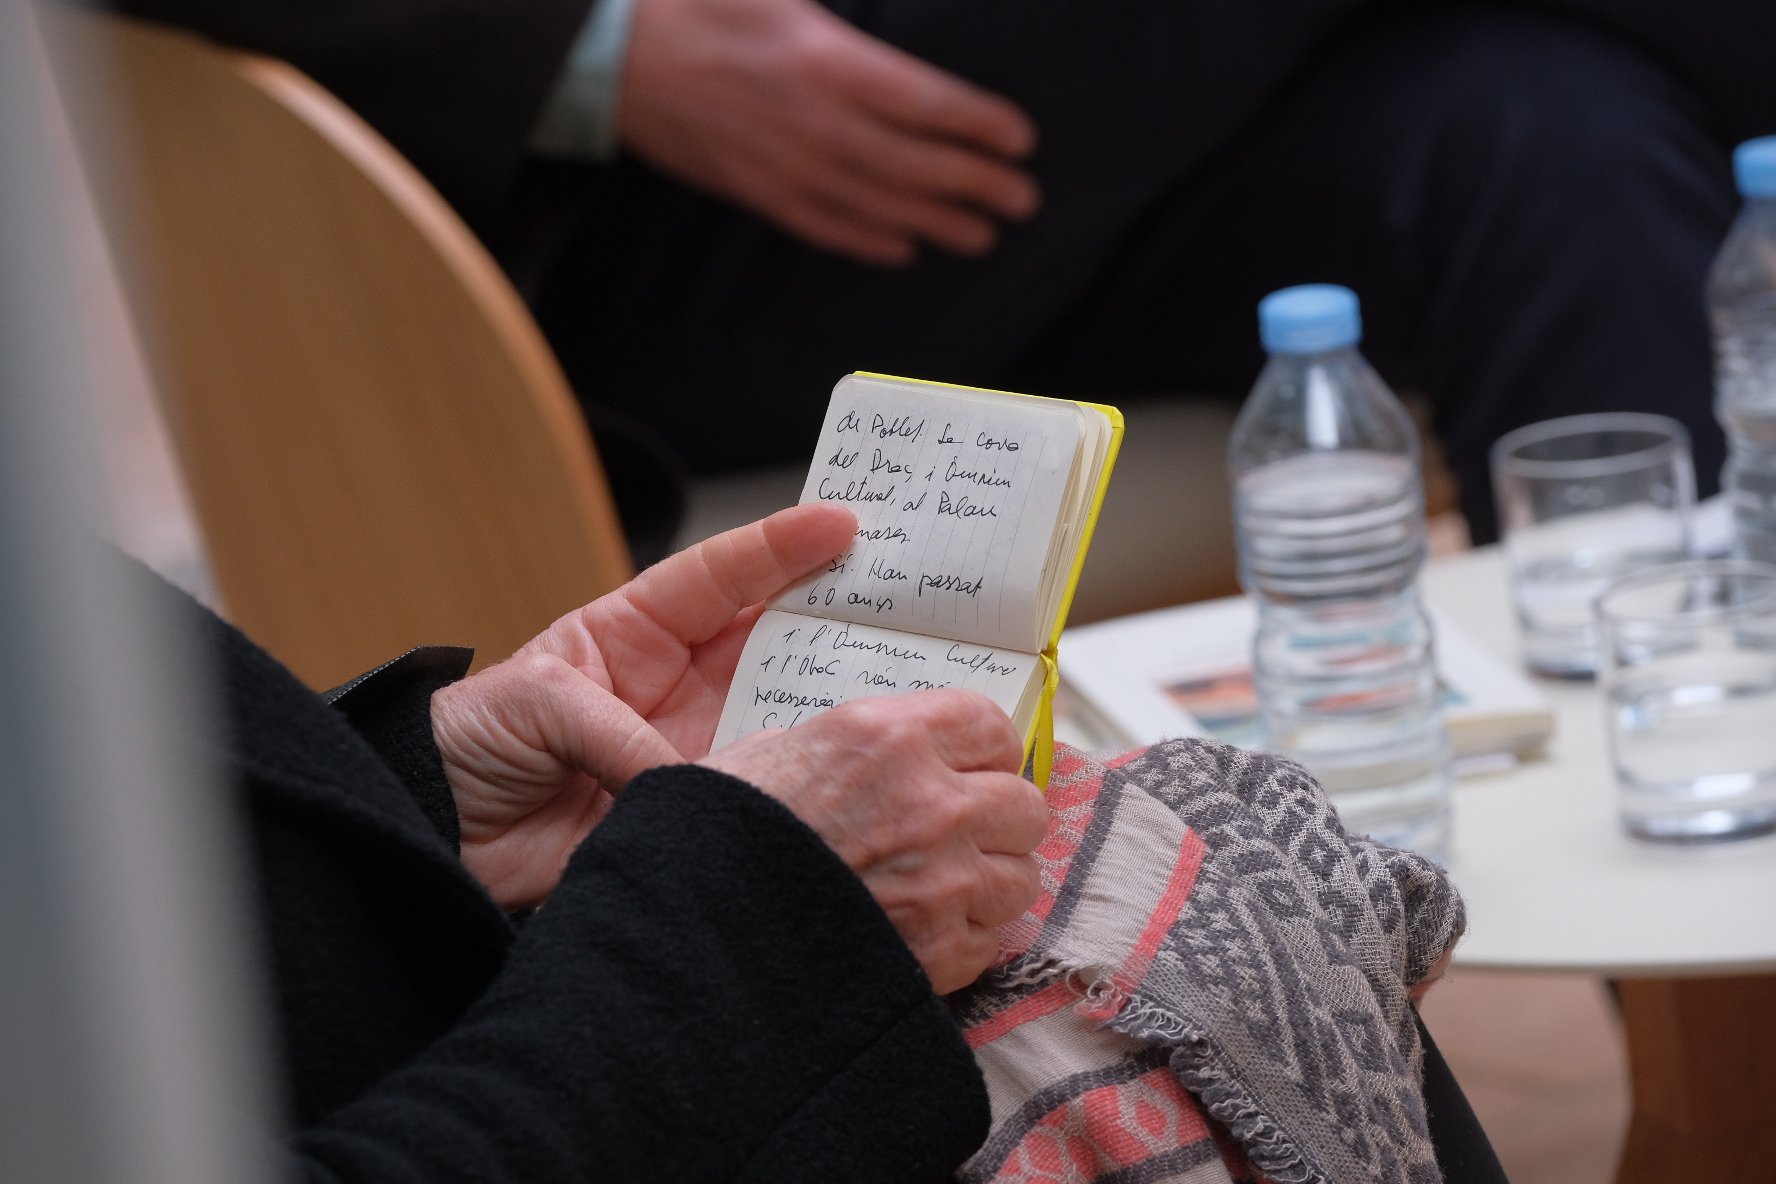 de Poblet. La cova
del Drac, i Òmnium
Cultural, al Palau
sí. Han passat
60 anys
i l'Òmnium Cultural
i l'Obac són més
necessaris